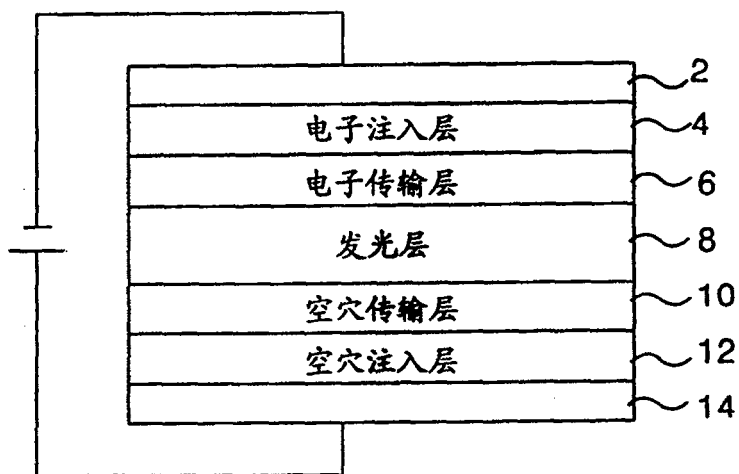 2
电子注入层 4
电子传输层 6
发光层 8
空穴传输层 10
空穴注入层 12
14